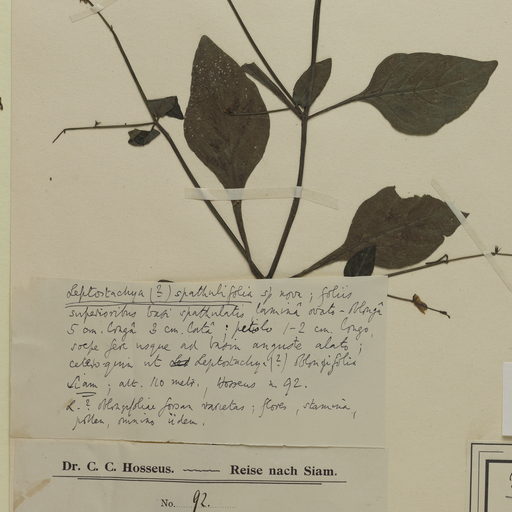 Leptostachya (?) spathulifolia sp. nova; foliis
superioribus basi spathulatis, laminâ ovato-oblongâ
5 cm. longâ 3 cm. latâ; petiolo 1-2 cm. longo,
saepe fere usque ad basin anguste alato;
ceteroquin ut Leptostachya (?) oblongifolia
Siam; alt. 110 metr., Hosseus n. 92.
L.? oblongifoliae forsan varietas; flores, stamina,
pollen, omnino iidem.
Dr. C. C. Hosseus. —— Reise nach Siam.
No. 92.